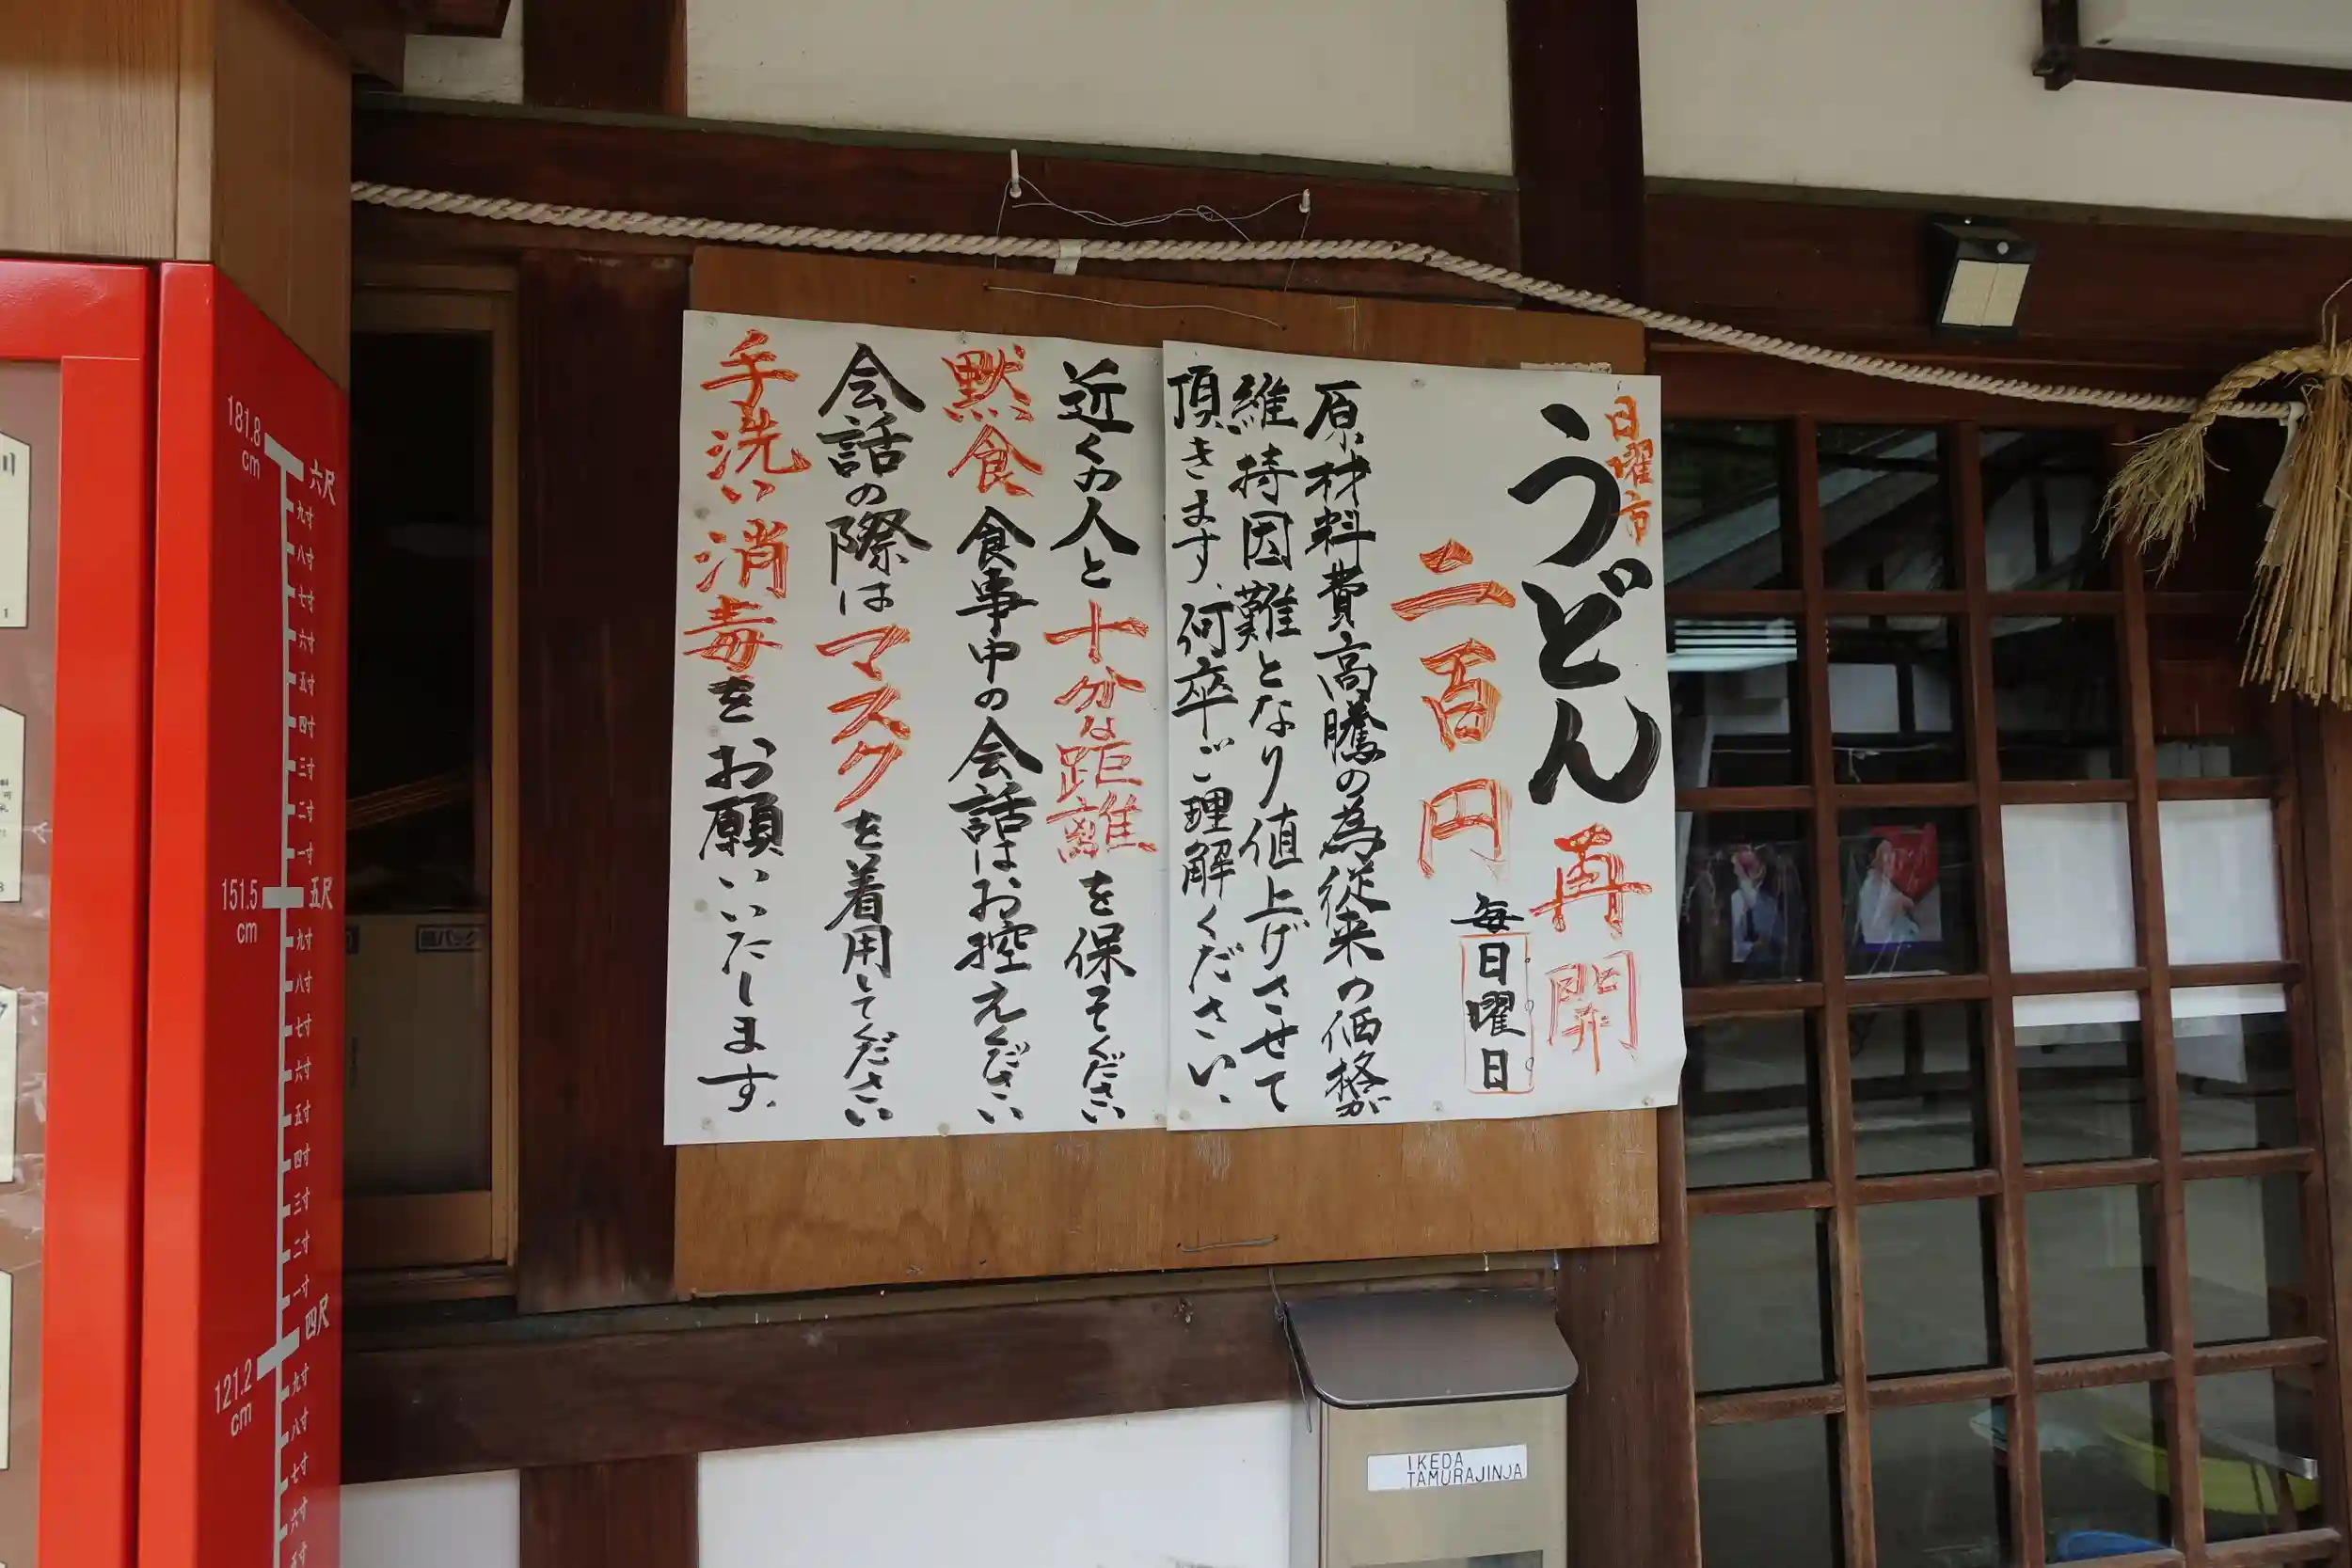 日曜市
うどん再開
二百円
毎日曜日
原材料費高騰の為従来の価格が
維持困難となり値上げさせて
頂きます、何卒ご理解ください、
近くの人と十分な距離を保そください
黙食食事中の会話はお控えください
会話の際はマスクを着用してください
手洗い消毒をお願いいたします。
181.8
cm
六尺
九寸
八寸
七寸
六寸
五寸
四寸
三寸
二寸
一寸
151.5
cm
五尺
九寸
八寸
七寸
六寸
五寸
四寸
三寸
二寸
一寸
121.2
cm
四尺
九寸
八寸
七寸
六寸
五寸
IKEDA
TAMURAJINJA